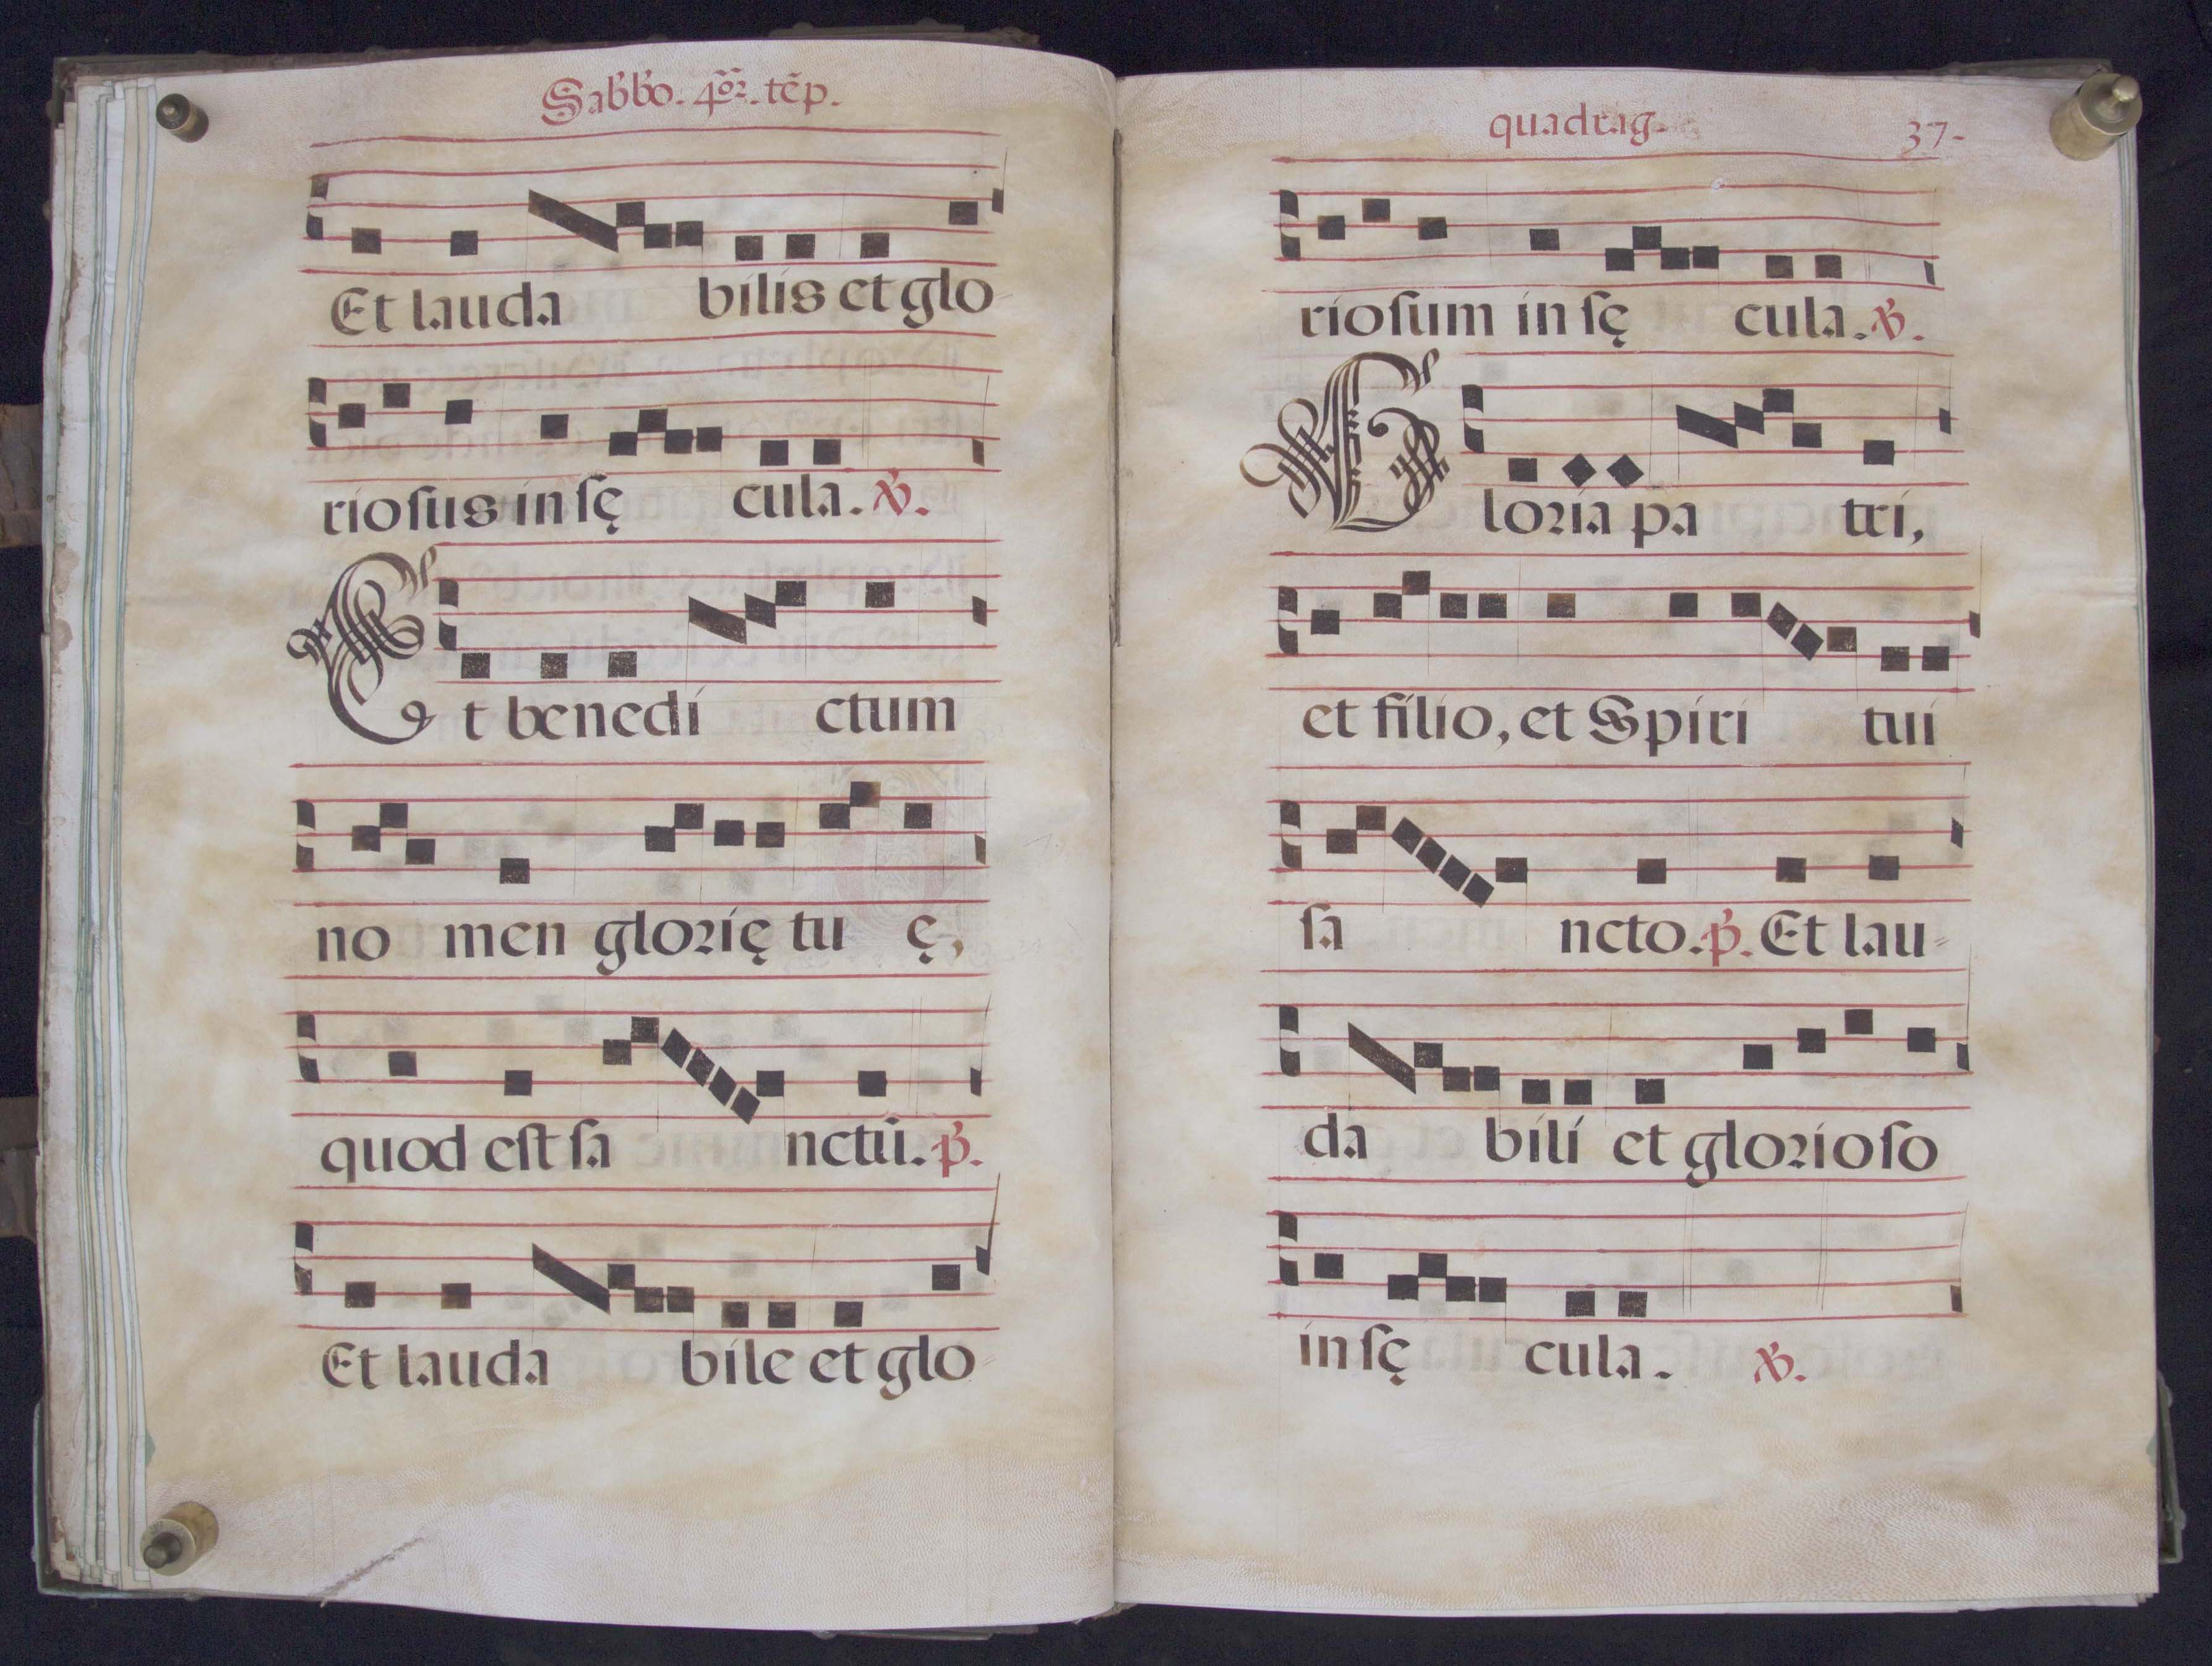 Sab̃b̃o. 4or. tẽp.
Et lauda bilis et glo-
riosus in sę cula. ℣.
Et benedi ctum
no men glorię tu ę,
quod est sa nctũ. p̃.
Et lauda bile et glo-
quadrag. 37-
riosum in sę cula. ℣.
Gloria pa tri,
et filio, et Spiri tui
sa ncto. p̃. Et lau-
da bili et glorioso
in sę cula. ℣.